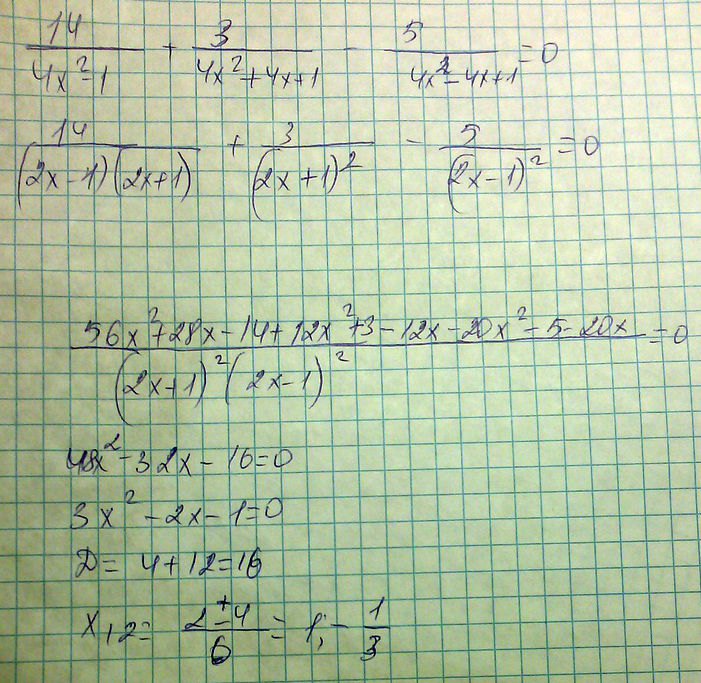 14/(4x²-1) + 3/(4x²+4x+1) - 5/(4x²-4x+1) = 0
14/((2x-1)(2x+1)) + 3/(2x+1)² - 5/(2x-1)² = 0
(56x²+28x-14+12x²+3-12x-20x²-5-20x)/((2x+1)²(2x-1)²) = 0
48x²-32x-16=0
3x²-2x-1=0
D= 4+12=16
x₁,₂= (2±4)/6 = 1; -1/3